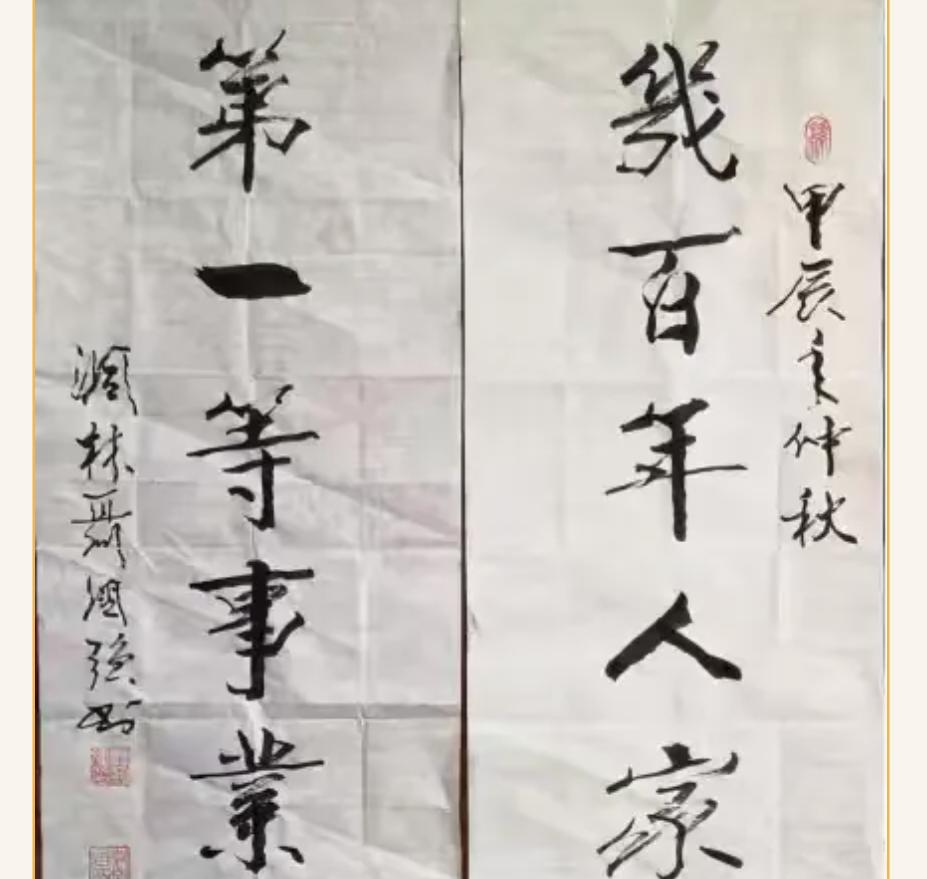 甲辰年仲秋
幾百年人家
第一等事業
林聶國強書